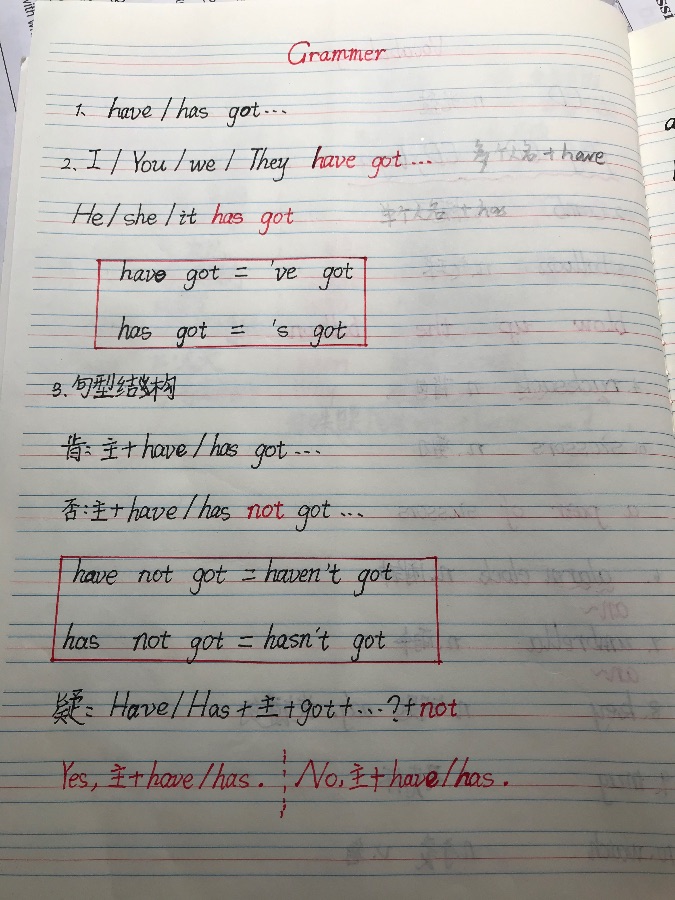 Grammer
1. have / has got...
2. I / You / we / They have got... 多个人名 + have
He / she / it has got 单个人名 + has
have got = 've got
has got = 's got
3. 句型结构
肯: 主 + have / has got ...
否: 主 + have / has not got ...
have not got = haven't got
has not got = hasn't got
疑: Have / Has + 主 + got + ...? + not
Yes, 主 + have / has. No, 主 + have / has.